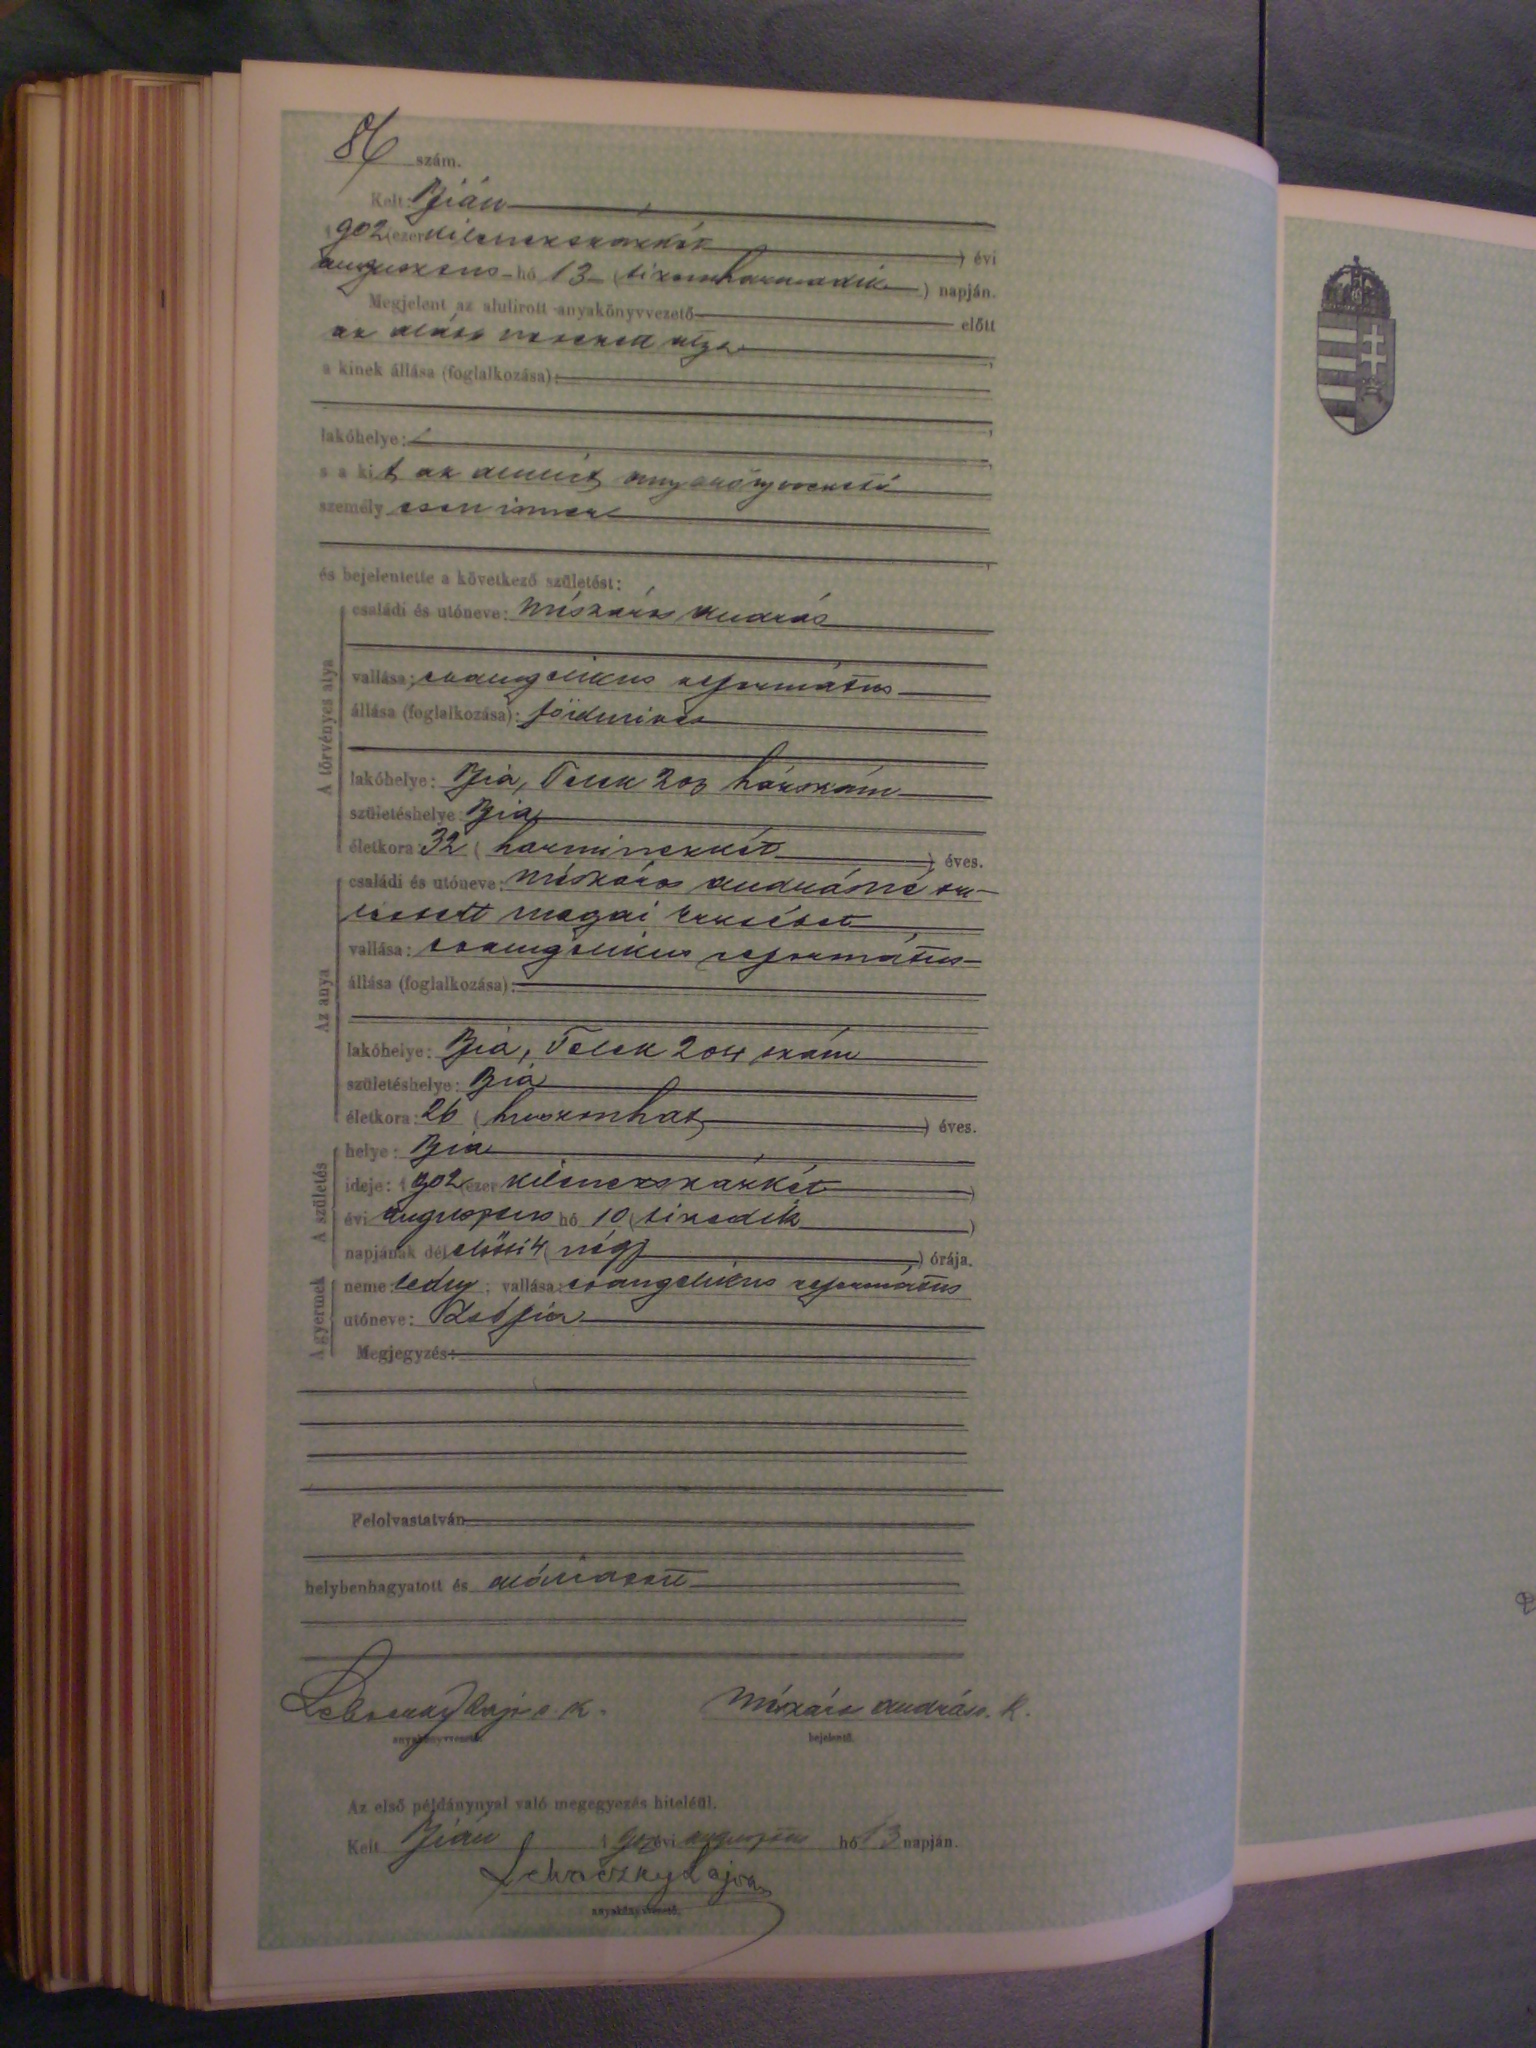 86 szám.
Kelt: Bián
1902 (ezer kilenczszázkét) évi
augusztus hó 13 (tizenharmadik) napján.
Megjelent az alulírott anyakönyvvezető előtt
az alább nevezett atya,
a kinek állása (foglalkozása):
lakóhelye:
s a kit az alulírt anyakönyvvezető
személyesen ismer
és bejelentette a következő születést:
A törvényes atya
családi és utóneve: Mészáros András
vallása: evangelikus református
állása (foglalkozása): földmives
lakóhelye: Bia, Telek 203 házszám
születéshelye: Bia
életkora: 32 (harminczkét) éves.
Az anya
családi és utóneve: Mészáros Andrásné szü-
letett Magai Erzsébet
vallása: evangelikus református
állása (foglalkozása):
lakóhelye: Bia, Telek 204 szám
születéshelye: Bia
életkora: 26 (huszonhat) éves.
A születés
helye: Bia
ideje: 1902 (ezer kilenczszázkét)
évi augusztus hó 10 (tizedik)
napjának délelőtti 4 (négy) órája.
A gyermek
neme: leány; vallása: evangelikus református
utóneve: Zsófia
Megjegyzés:
Felolvastatván
helybenhagyatott és aláiratott
Lajos k. Mészáros András. k.
anyakönyvvezető. bejelentő.
Az első példánynyal való megegyezés hiteléül.
Kelt Bián 1902 évi augusztus hó 13 napján.
Lajos
anyakönyvvezető.